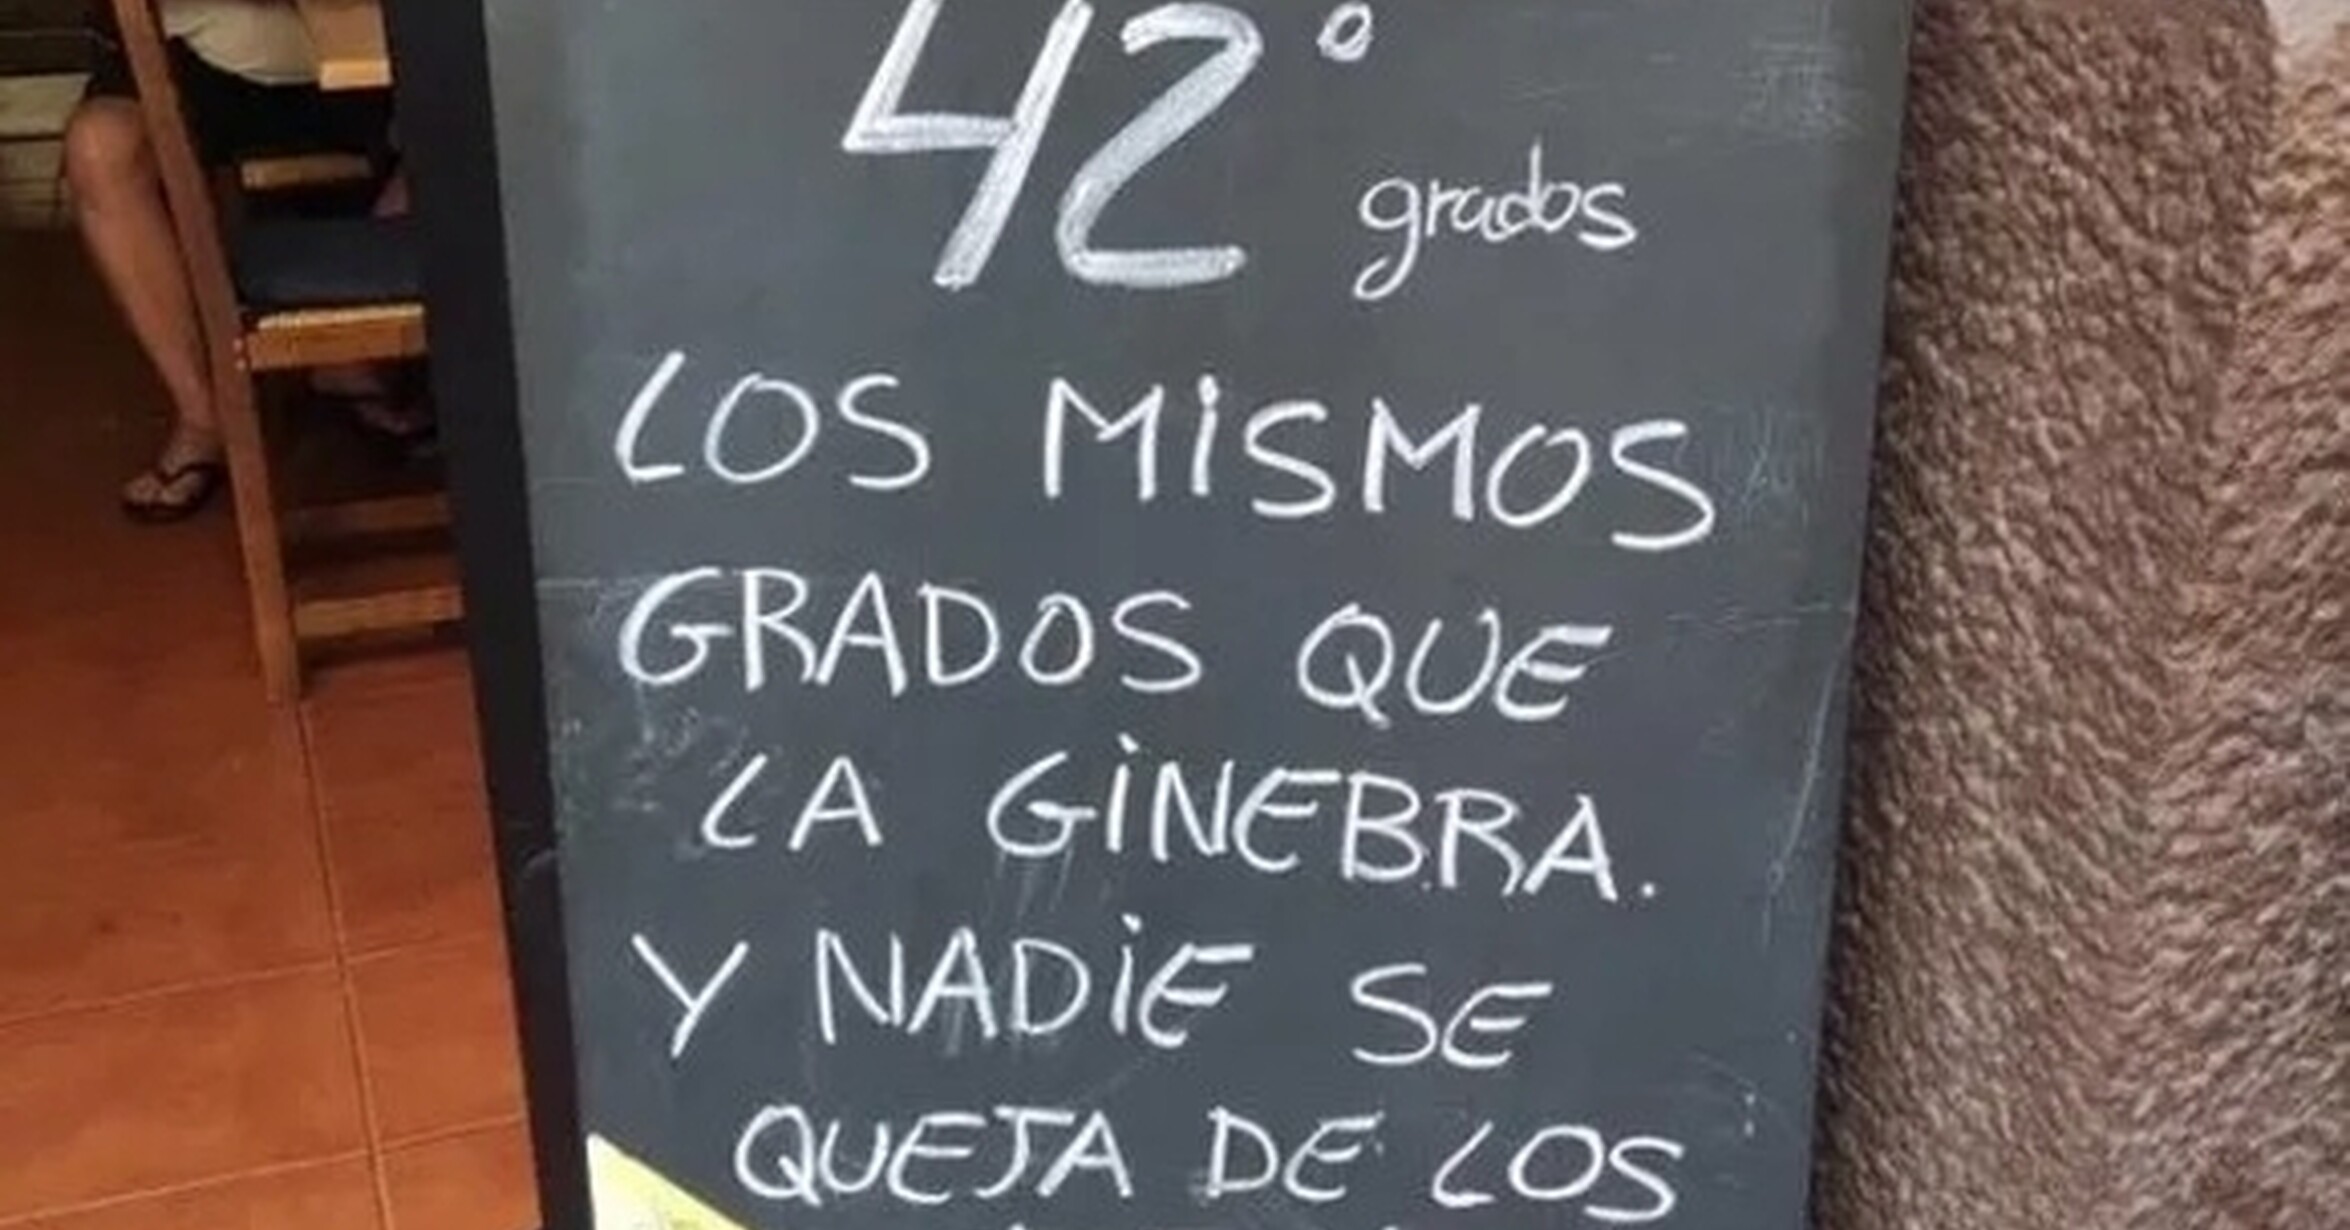 42°
grados
LOS MISMOS
GRADOS QUE
LA GINEBRA.
Y NADIE SE
QUEJA DE LOS